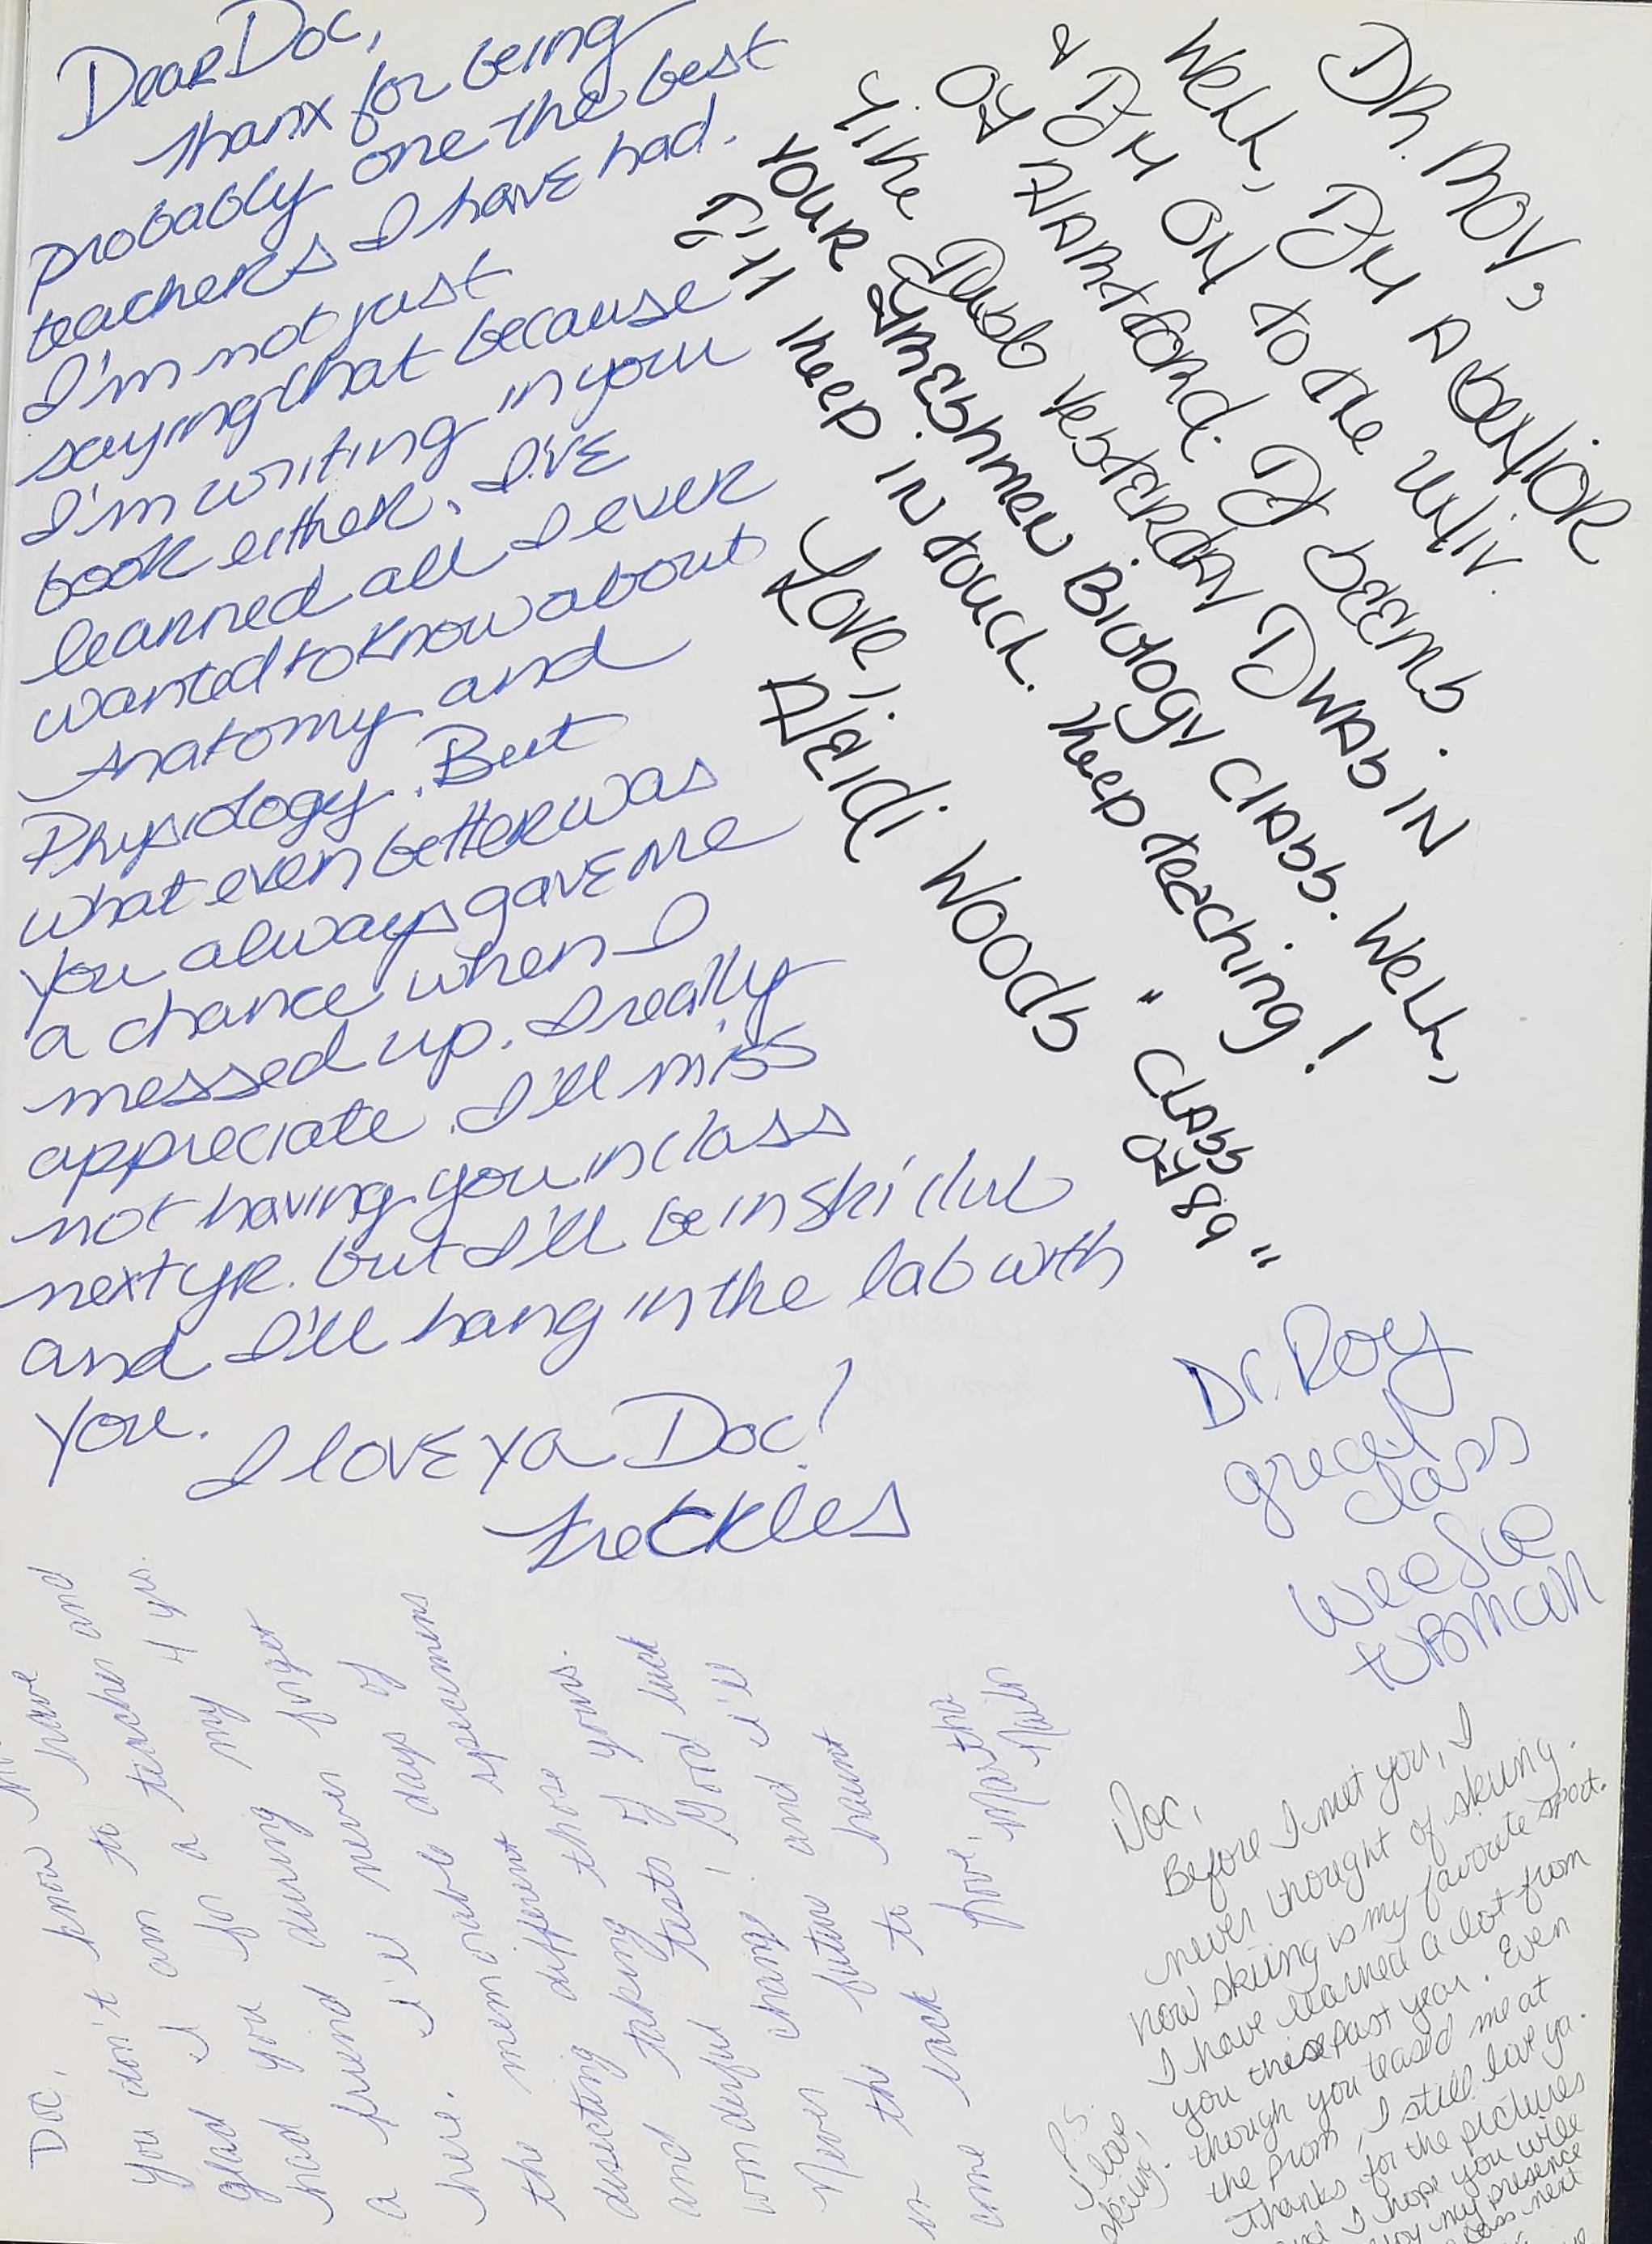 Dear Doc,
Thanx for being
probably one the best
teachers I have had.
I'm not just
saying that because
I'm writing in your
book either. I'VE
learned all I ever
wanted to know about
Anatomy and
Physiology. But
what even better was
you always gave me
a chance when I
messed up. I really
appreciate. I'll miss
not having you in class
next yr. but I'll be in ski club
and I'll hang in the lab with
you.
I love ya Doc!
Freckles
DR. MOV,
Well, I'M A SENIOR
& I'M ON to the UNIV.
OF HARtFORd. It SEEMS
like Just YEStERdAY I WAS IN
YOUR FRESHMEN BiOlOGY ClASS. Well,
I'll keep IN touch. Keep teaching!
Love,
HEidi Woods
"Class
OF 89"
Dr. Roy
great
class
Doc,
you don't know have
glad I am to have and
had you for a teacher and
a friend during my 4 yrs.
here. I'll never forget
the memorable days of
disecting different specimens
and taking those
wonderful tests of yours.
Never change! Good luck
in the future and I'll
come back to haunt
Love,
Martha
Doc,
Before I met you, I
never thought of skiing.
now skiing is my favorite sport.
I have learned a lot from
you this past year. Even
though you teased me at
the prom, I still love ya.
Thanks for the pictures
and I hope you will
my presence
class next
P.S.
I love
skiing!